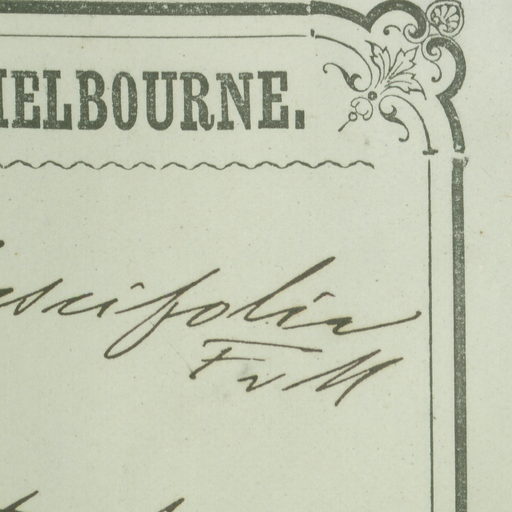 MELBOURNE.
uscifolia
FvM